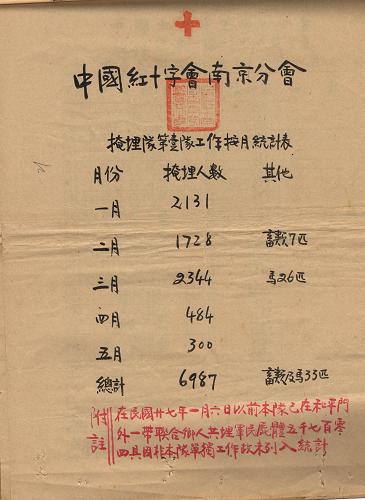 中國紅十字會南京分會
掩埋隊第壹隊工作按月統計表
月份 掩埋人數 其他
一月 2131
二月 1728 畜類7匹
三月 2344 馬26匹
四月 484
五月 300
總計 6987 畜類及馬33匹
附註 在民國廿七年一月六日以前本隊已在和平門
外一帶聯合鄉人共埋軍民屍體五千七百零
四具因非本隊單獨工作故未列入統計